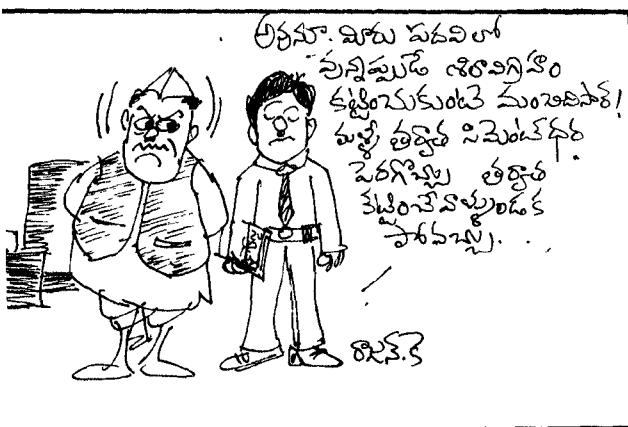 అవునూ. మీరు పదవిలో
వున్నప్పుడే శిలావిగ్రహం
కట్టించుకుంటే మంచిదిసార్!
మళ్ళీ తర్వాత సిమెంట్ ధర
పెరగొచ్చు తర్వాత
కట్టించేవాళ్ళుండక
పోవచ్చు. . .
రాజన్.కె